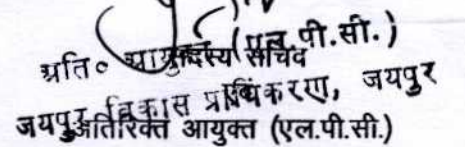 अति० आयुक्त (एल.पी.सी.)
सदस्य सचिव
जयपुर विकास प्राधिकरण, जयपुर
अतिरिक्त आयुक्त (एल.पी.सी.)